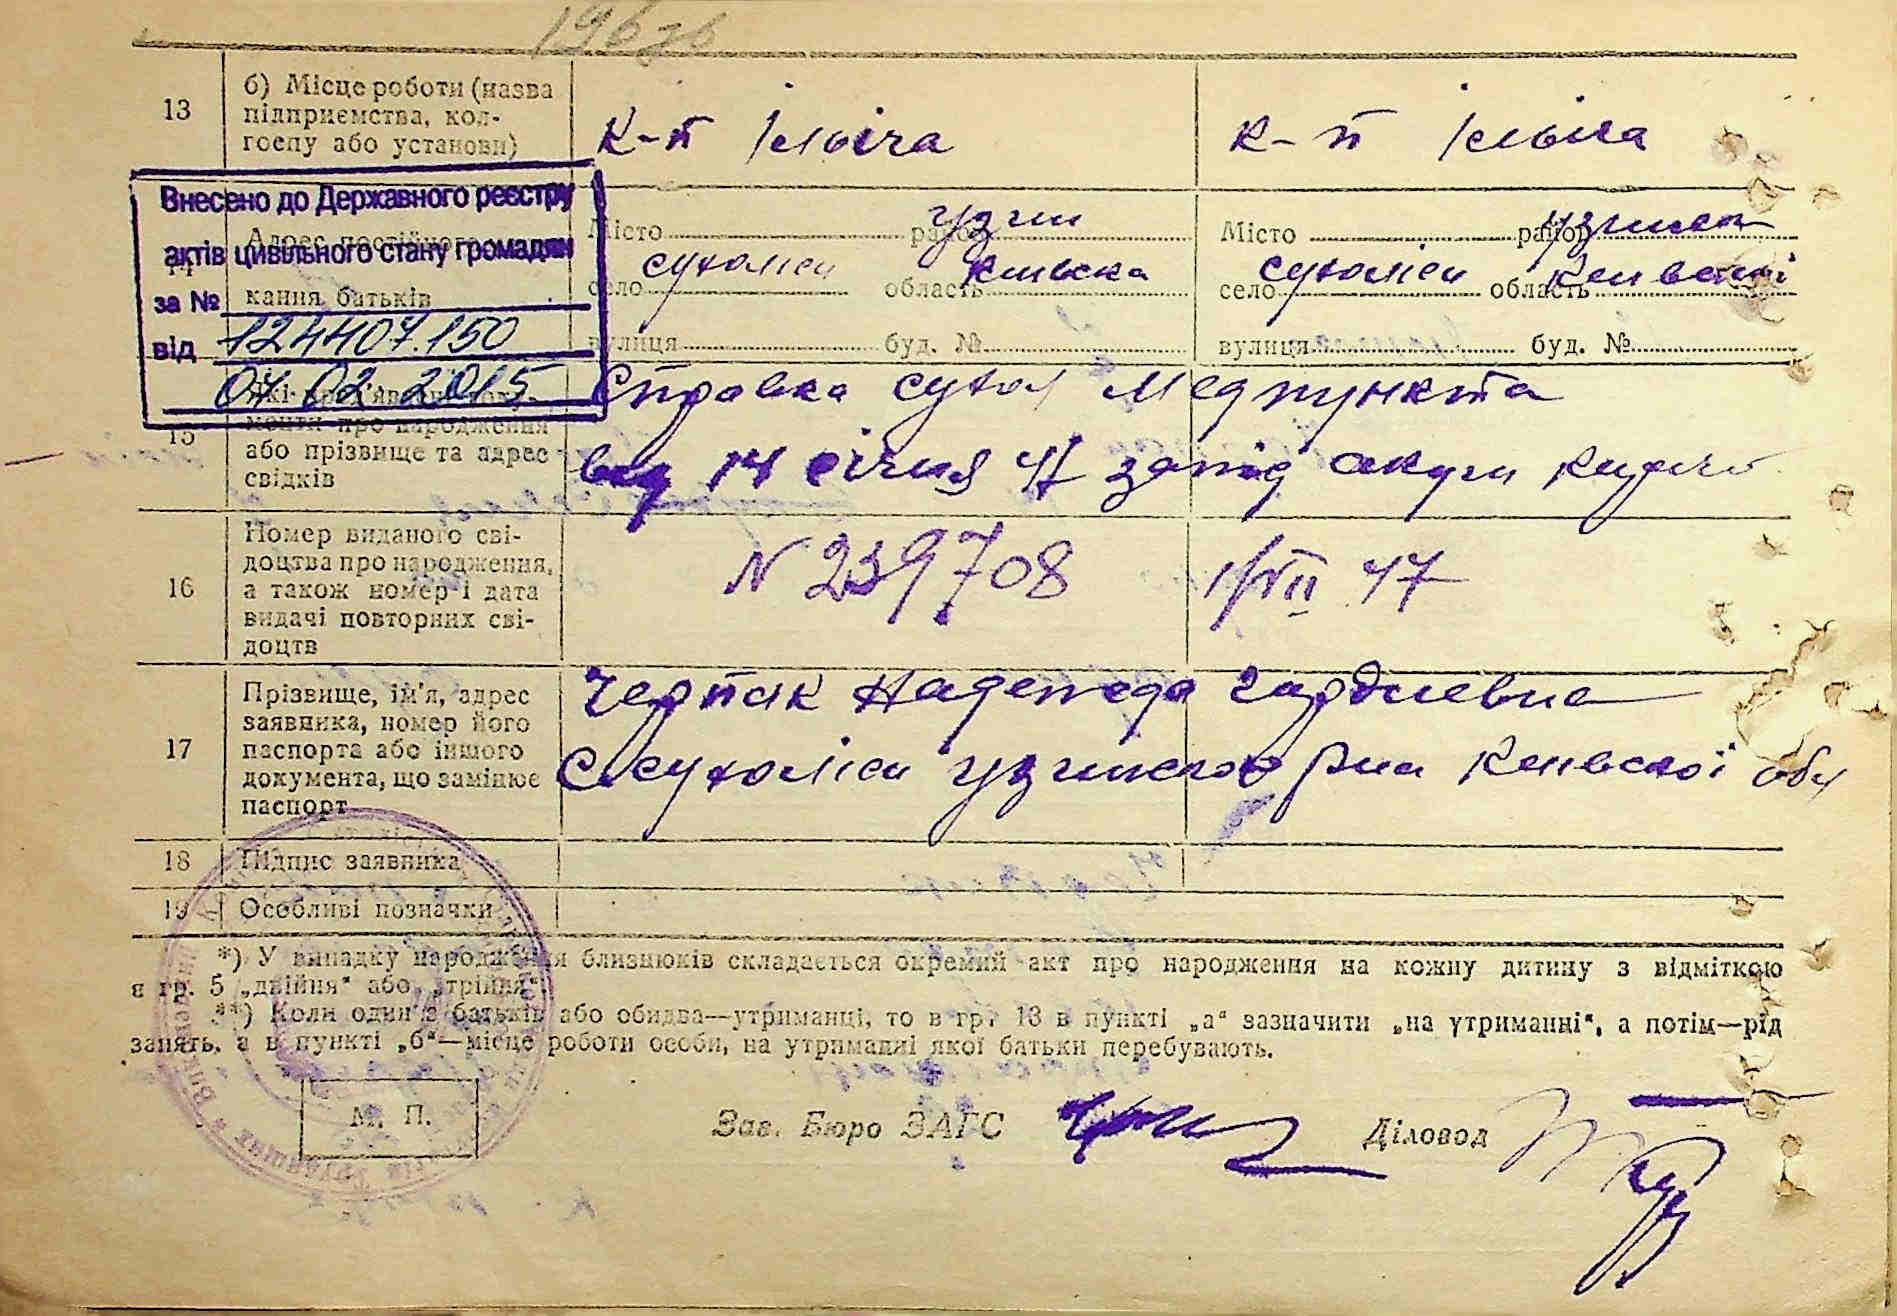 13
б) Місце роботи (назва
підприємства, кол-
госпу або установи)
к-п Ілліча
к-п Ілліча
Внесено до Державного реєстру
актів цивільного стану громадян
за №
124407.150
від
04 02 2015
кання батьків
Місто район Узин
село Сухоліси область Київська
вулиця буд. №
Місто район
село Сухоліси область
вулиця буд. №
15
менти про народження
або прізвище та адрес
свідків
Справка Сухол Медпункта
від 14 січня 47
16
Номер виданого сві-
доцтва про народження,
а також номер і дата
видачі повторних сві-
доцтв
N 239708
1/VII 47
17
Прізвище, ім'я, адрес
заявника, номер його
паспорта або іншого
документа, що замінює
паспорт
Черпак Надежда
С Сухоліси Узинского Р-на Киевской обл
18
Підпис заявника
19
Особливі позначки
*) У випадку народження близнюків складається окремий акт про народження на кожну дитину з відміткою
в гр. 5 „двійня“ або „трійня“.
**) Коли один з батьків або обидва—утриманці, то в гр. 13 в пункті „а“ зазначити „на утриманні“, а потім—рід
занять, а в пункті „б“—місце роботи особи, на утриманні якої батьки перебувають.
М. П.
Зав. Бюро ЗАГС
Діловод